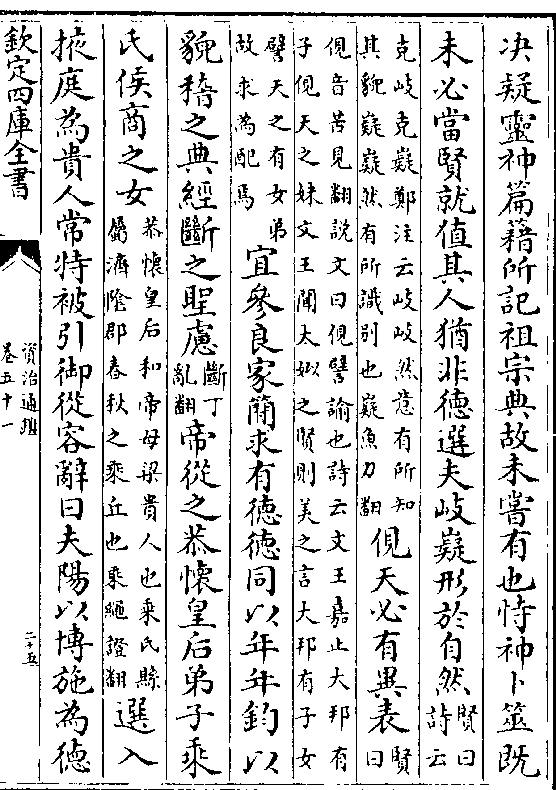 决疑靈神篇籍所記祖宗典故未嘗有也恃神卜筮既
未必當賢就值其人猶非德選夫岐嶷形於自然賢曰詩云
克岐克嶷鄭注云岐岐然意有所知
其貌嶷嶷然有所識別也嶷魚力翻
俔天必有異表賢曰
俔音苦見翻說文曰俔譬諭也詩云文王嘉止大邦有
子俔天之妹文王聞大姒之賢則美之言大邦有子女
譬天之有女弟
故求為配焉
宜參良家簡求有德德同以年年鈞以
貌稽之典經斷之聖慮斷丁亂翻帝從之恭懷皇后弟子乘
氏侯商之女
恭懷皇后和帝母梁貴人也乘氏縣
屬濟陰郡春秋之乘丘也乘繩證翻
選入
掖庭為貴人常特被引御從容辭曰夫陽以博施為德
欽定四庫全書
資治通鑑
卷五十一
二十五